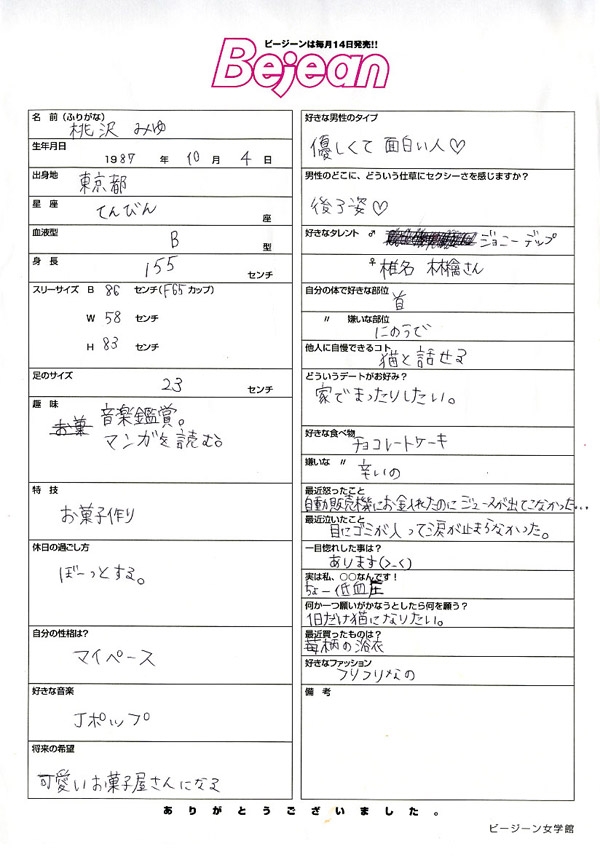 ビージーンは毎月14日発売!!
Bejean
名前(ふりがな)
桃沢 みゆ
生年月日
1987 年 10 月 4 日
出身地
東京都
星座
てんびん 座
血液型
B 型
身長
155 センチ
スリーサイズ B 86 センチ(F65カップ)
W 58 センチ
H 83 センチ
足のサイズ
23 センチ
趣味
お菓 音楽鑑賞。
マンガを読む。
特技
お菓子作り
休日の過ごし方
ぼーっとする。
自分の性格は?
マイペース
好きな音楽
Jポップ
将来の希望
可愛いお菓子屋さんになる
好きな男性のタイプ
優しくて 面白い人♡
男性のどこに、どういう仕草にセクシーさを感じますか?
後ろ姿♡
好きなタレント ♂ ジョニー デップ
♀ 椎名 林檎さん
自分の体で好きな部位
首
〃 嫌いな部位
にのうで
他人に自慢できるコト
猫と話せる
どういうデートがお好み?
家でまったりしたい。
好きな食べ物
チョコレートケーキ
嫌いな 〃
辛いの
最近怒ったこと
自動販売機にお金入れたのにジュースが出てこなかった…
最近泣いたこと
目にゴミが入って涙が止まらなかった。
一目惚れした事は?
あります(>_<)
実は私、○○なんです!
ちょー低血圧
何か一つ願いがかなうとしたら何を願う?
1日だけ猫になりたい。
最近買ったものは?
苺柄の浴衣
好きなファッション
フリフリなの
備考
ありがとうございました。
ビージーン女学館